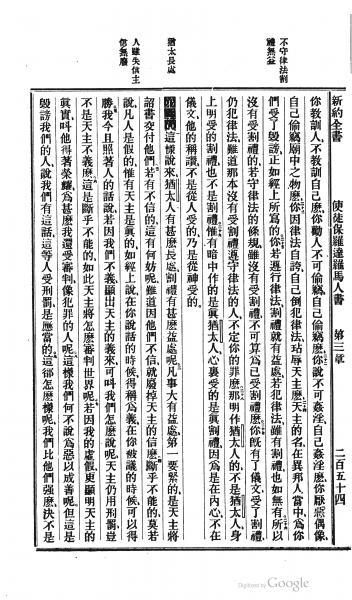 新約全書　使徒保羅達羅馬人書　第三章　二百五十四
不守律法割
禮無益
猶太長處
人雖失信主
信無廢
你教訓人、不教訓自己麼、你勸人不可偷竊、自己偷竊麼、你說不可姦淫、自己姦淫麼、你厭惡偶像、
自己偷竊廟中之物麼、你因律法自誇、自己倒犯律法、玷辱天主麼、天主的名、在異邦人當中、爲你
們受了毀謗、正如經上所寫的、你若遵行律法、割禮就有益處、若犯律法、雖有割禮也如無有、所以
沒有受割禮的、若守律法的條規、雖沒有受割禮、不可算已受割禮麼、你旣有了儀文受了割禮、
仍犯律法、難道那本沒有受割禮遵守律法的人、不定你的罪麼、那明作猶太人的、不是猶太人、身
上明受的割禮、也不是割禮、惟有暗中作的、是眞猶太人、心裏受的是眞割禮、因爲是在內心、不在
儀文、他的稱讚、不是從人受的、乃是從神受的
第三章這樣說來、猶太人有甚麼長處、割禮有甚麼益處呢、凡事大有益處、第一要緊的、是天主將
詔書交付他們、若有不信的、這有何妨呢、難道因他們不信、就廢棹天主的信麼、斷乎不能的、莫若
說、凡人是假的、惟有天主是眞的、如經上說、在你說話的時候、得稱爲義、在你被議的時候、可以得
勝、我今且照著人的話說、若因我們不義、顯出天主的義來、可叫我們怎麼說呢、天主仍用刑罰、豈
不是天主不義麼、這是斷乎不能的、如此天主將怎麼審判世界呢、若因我的虛假、更顯明天主的
眞實、叫他得著榮耀、爲甚麼我還受審判、像犯罪的人呢、這樣我們何不說、爲惡以成善呢、但這是
毀謗我們的人、說我們有這話、這等人受刑罰是應當的、這卻怎麼樣呢、我們比他們強麼、決不是
Digitized by Google